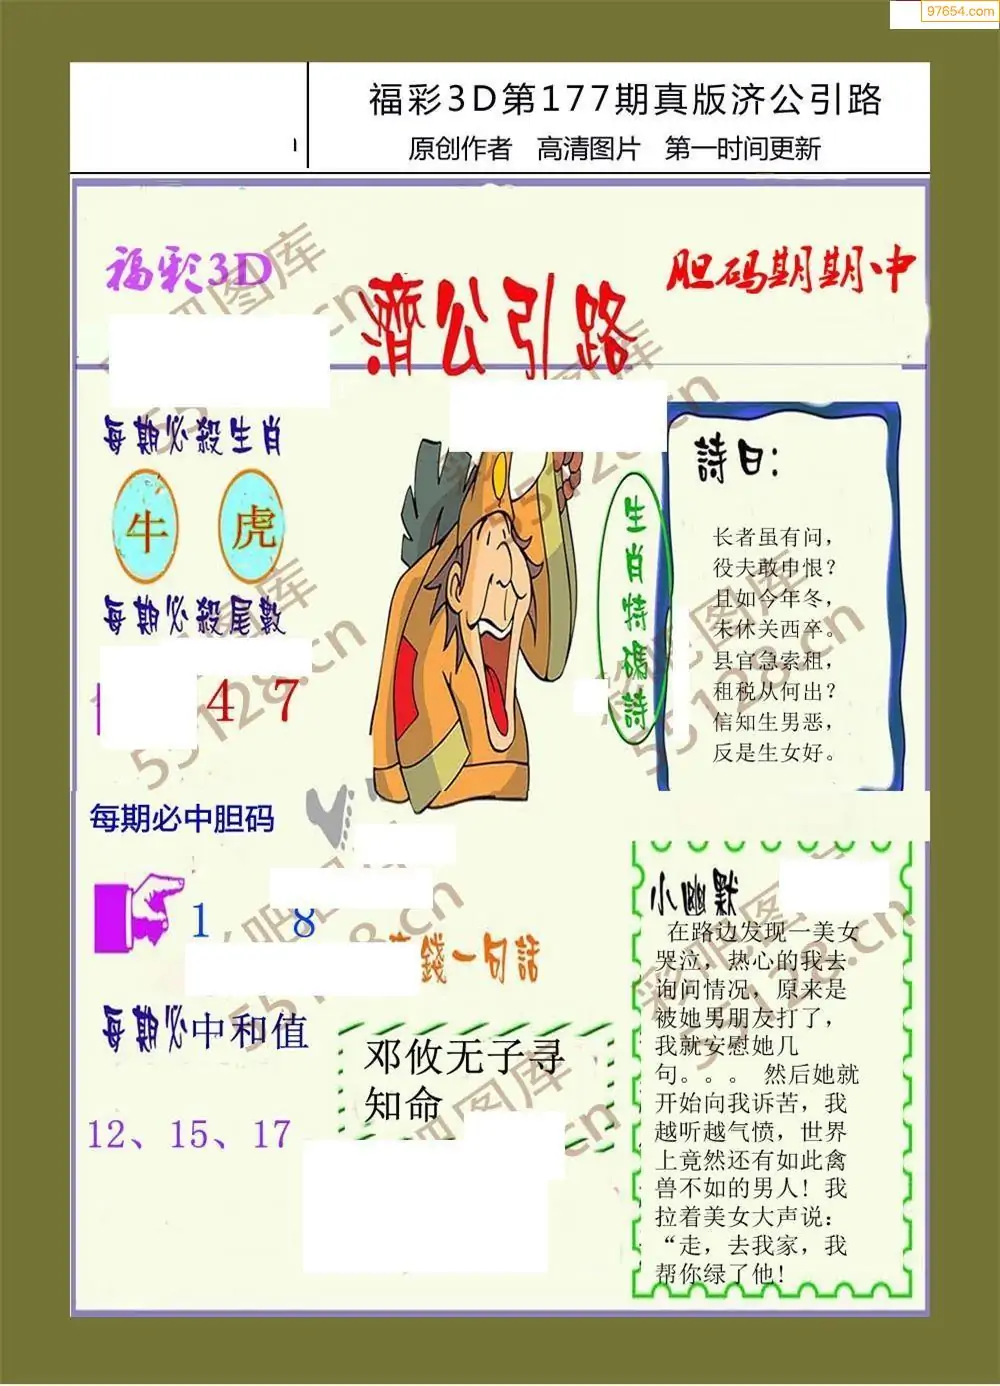 97654.com
福彩3D第177期真版济公引路
原创作者 高清图片 第一时间更新
福彩3D
胆码期期中
濟公引路
每期必殺生肖
牛 虎
每期必殺尾數
4 7
每期必中胆码
1 8
每期必中和值
12、15、17
生肖特碼詩
詩曰：
长者虽有问，
役夫敢申恨？
且如今年冬，
未休关西卒。
县官急索租，
租税从何出？
信知生男恶，
反是生女好。
錢一句話
邓攸无子寻
知命
小幽默
在路边发现一美女
哭泣，热心的我去
询问情况，原来是
被她男朋友打了，
我就安慰她几
句。。。 然后她就
开始向我诉苦，我
越听越气愤，世界
上竟然还有如此禽
兽不如的男人！我
拉着美女大声说：
“走，去我家，我
帮你绿了他!
彩吧图库
55128.cn